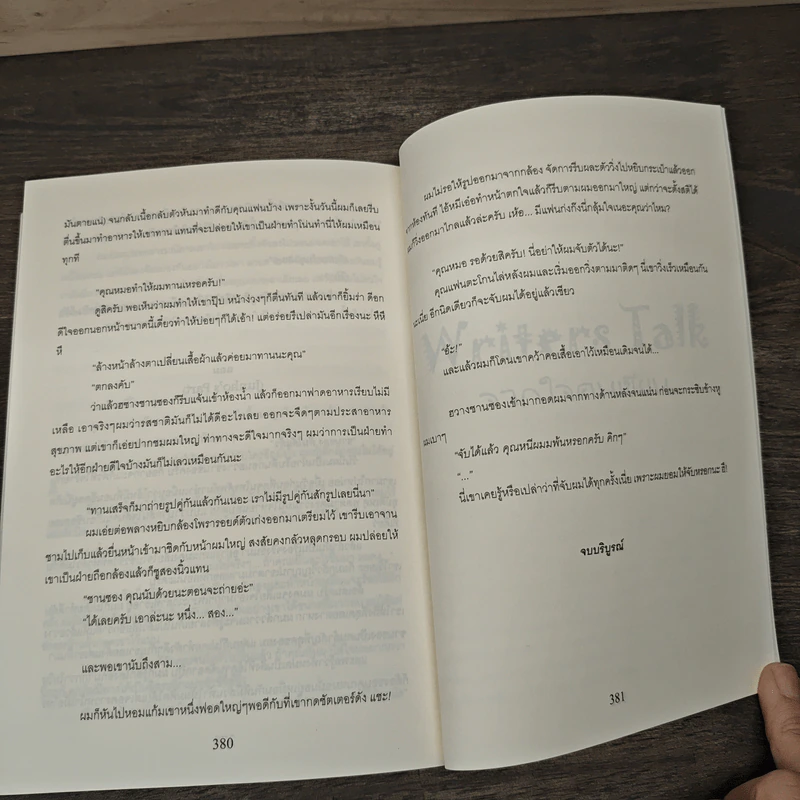 มันตายแน่) จนกลับเนื้อกลับตัวหันมาทำดีกับคุณแฟนบ้าง เพราะงั้นวันนี้ผมก็เลยรีบ
ตื่นขึ้นมาทำอาหารให้เขาทาน แทนที่จะปล่อยให้เขาเป็นฝ่ายทำโน่นทำนี่ให้ผมเหมือน
ทุกที
“คุณหมอทำให้ผมทานเหรอครับ!”
ดูสิครับ พอเห็นว่าผมทำให้เขาปุ๊บ หน้าง่วงๆก็ตื่นทันที แล้วเขาก็ยิ้มร่า ดีอก
ดีใจออกนอกหน้าขนาดนี้เดี๋ยวทำให้บ่อยๆก็ได้เอ้า! แต่อร่อยรึเปล่ามันอีกเรื่องนะ หึหึ
หึ
“ล้างหน้าล้างตาเปลี่ยนเสื้อผ้าแล้วค่อยมาทานนะคุณ”
“ตกลงคับ”
ว่าแล้วฮวางซานซองก็รีบแจ้นเข้าห้องน้ำ แล้วก็ออกมาฟาดอาหารเรียบไม่มี
เหลือ เอาจริงๆผมว่ารสชาติมันก็ไม่ได้ดีอะไรเลย ออกจะจืดๆตามประสาอาหาร
สุขภาพ แต่เขาก็เอ่ยปากชมผมใหญ่ ท่าทางจะดีใจมากจริงๆ ผมว่าการเป็นฝ่ายทำ
อะไรให้อีกฝ่ายดีใจบ้างมันก็ไม่เลวเหมือนกันนะ
“ทานเสร็จก็มาถ่ายรูปคู่กันแล้วกันเนอะ เราไม่มีรูปคู่กันสักรูปเลยนี่นา”
ผมเอ่ยต่อพลางหยิบกล้องโพรารอยด์ตัวเก่งออกมาเตรียมไว้ เขารีบเอาจาน
ชามไปเก็บแล้วยื่นหน้าเข้ามาชิดกับหน้าผมใหญ่ สงสัยคงกลัวหลุดกรอบ ผมปล่อยให้
เขาเป็นฝ่ายถือกล้องแล้วก็ชูสองนิ้วแทน
“ซานซอง คุณนับด้วยนะตอนจะถ่ายอ่ะ”
“ได้เลยครับ เอาล่ะนะ หนึ่ง... สอง...”
และพอเขานับถึงสาม...
ผมก็หันไปหอมแก้มเขาหนึ่งฟอดใหญ่ๆพอดีกับที่เขากดชัตเตอร์ดัง แชะ!
380
ผมไม่รอให้รูปออกมาจากกล้อง จัดการรีบผละตัววิ่งไปหยิบกระเป๋าแล้วออก
จากห้องทันที ไอ้หมีเอ๋อทำหน้าตกใจแล้วก็รีบตามผมออกมาใหญ่ แต่กว่าจะตั้งสติได้
ผมก็วิ่งออกมาไกลแล้วล่ะครับ เห้อ... มีแฟนเก่งก็งี้น่ากลุ้มใจเนอะคุณว่าไหม?
“คุณหมอ รอด้วยสิครับ! นี่อย่าให้ผมจับตัวได้นะ!”
คุณแฟนตะโกนไล่หลังผมและเริ่มออกวิ่งตามมาติดๆ นี่เขาวิ่งเร็วเหมือนกัน
นะเนี่ย อีกนิดเดียวก็จะจับผมได้อยู่แล้วเชียว
“อ๊ะ!”
และแล้วผมก็โดนเขาคว้าคอเสื้อเอาไว้เหมือนเดิมจนได้...
ฮวางซานซองเข้ามากอดผมจากทางด้านหลังจนแน่น ก่อนจะกระซิบข้างหู
ผมเบาๆ
“จับได้แล้ว คุณหนีผมมพ้นหรอกครับ คิกๆ”
“...”
นี่เขาเคยรู้หรือเปล่าว่าที่จับผมได้ทุกครั้งเนี่ย เพราะผมยอมให้จับหรอกนะ ฮึ!
จบบริบูรณ์
381